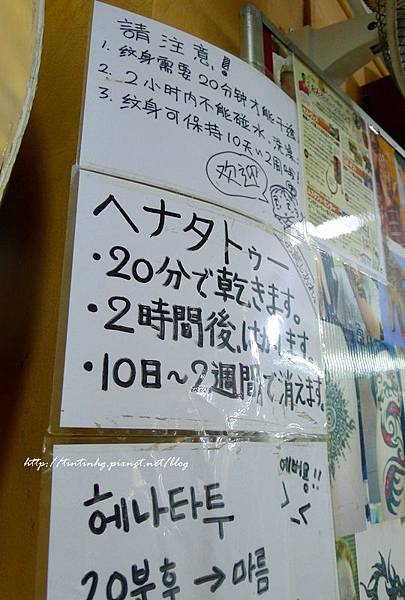 請注意!
1. 纹身需要20分钟才能干透
2. 2小时内不能碰水、洗澡
3. 纹身可保持10天~2周哦!
欢迎
ヘナタトゥー
・20分で乾きます。
・2時間後はがします。
・10日~2週間で消えます。
http://tintinhg.pixnet.net/blog
예뻐용!!
>_<
헤나타투
20분후 → 마름